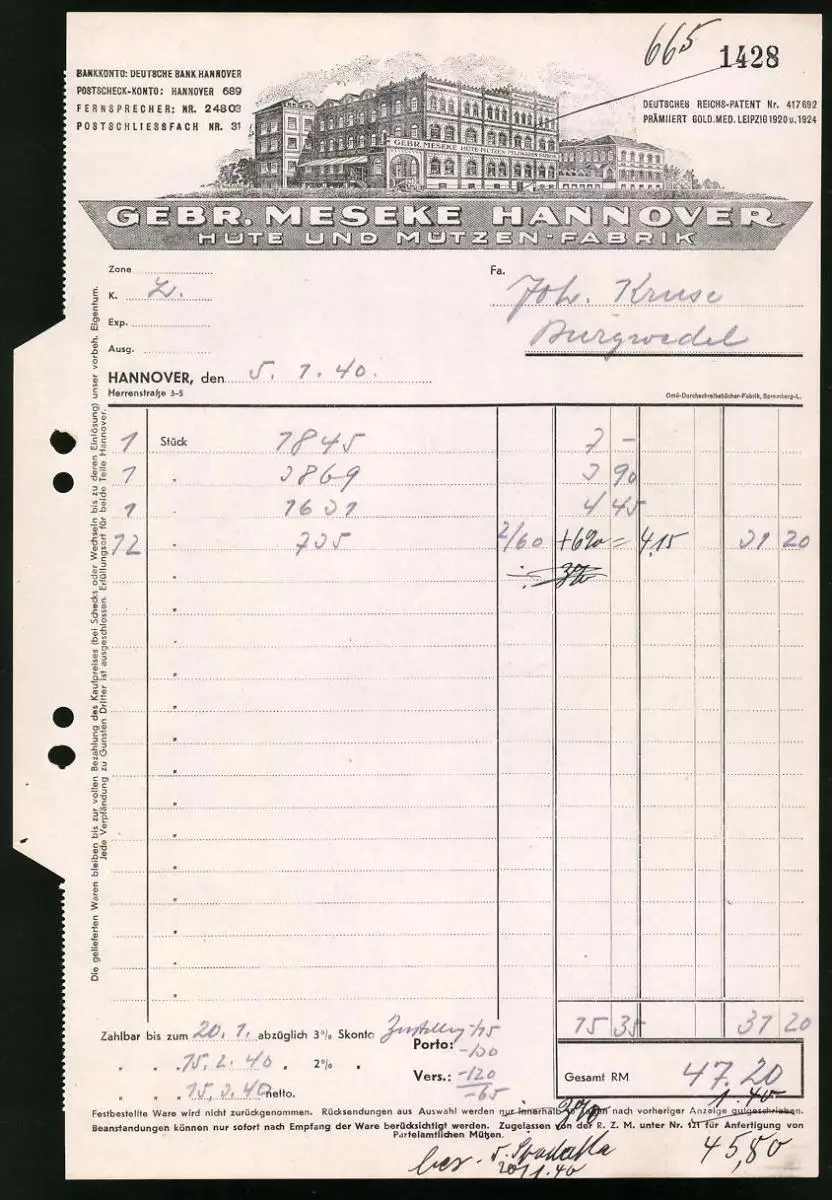 665
1428
BANKKONTO: DEUTSCHE BANK HANNOVER
POSTSCHECK-KONTO: HANNOVER 689
FERNSPRECHER: NR. 24803
POSTSCHLIESSFACH NR. 31
DEUTSCHES REICHS-PATENT Nr. 417692
PRÄMIIERT GOLD. MED. LEIPZIG 1920 u. 1924
GEBR. MESEKE HÜTE-MÜTZEN-PELZWAREN-FABRIK
GEBR. MESEKE HANNOVER
HÜTE UND MÜTZEN-FABRIK
Zone
K. Z.
Exp.
Ausg.
Fa. Joh. Kruse
Burgwedel
HANNOVER, den 5. 1. 40.
Herrenstraße 3-5
Omü-Durchschreibebücher-Fabrik, Spremberg-L.
1 Stück 1845 7 -
1 " 3869 3 90
1 " 1631 4 45
12 " 735 2/60 + 6% = 4.15 31 20
3%
15 35 31 20
Zahlbar bis zum 20. 1. abzüglich 3% Skonto
" " " 15. 2. 40 " 2% "
" " " 15. 3. 40 netto.
Porto: -.30
Vers.: -.20
-.65
Gesamt RM 47.20
3% 1.40
45,80
Festbestellte Ware wird nicht zurückgenommen. Rücksendungen aus Auswahl werden nur innerhalb 10 Tagen nach vorheriger Anzeige gutgeschrieben.
Beanstandungen können nur sofort nach Empfang der Ware berücksichtigt werden. Zugelassen von der R. Z. M. unter Nr. 121 für Anfertigung von
Parteiamtlichen Mützen.
bez.
20/1.40
Die gelieferten Waren bleiben bis zur vollen Bezahlung des Kaufpreises (bei Schecks oder Wechseln bis zu deren Einlösung) unser vorbeh. Eigentum.
Jede Verpfändung zu Gunsten Dritter ist ausgeschlossen. Erfüllungsort für beide Teile Hannover.